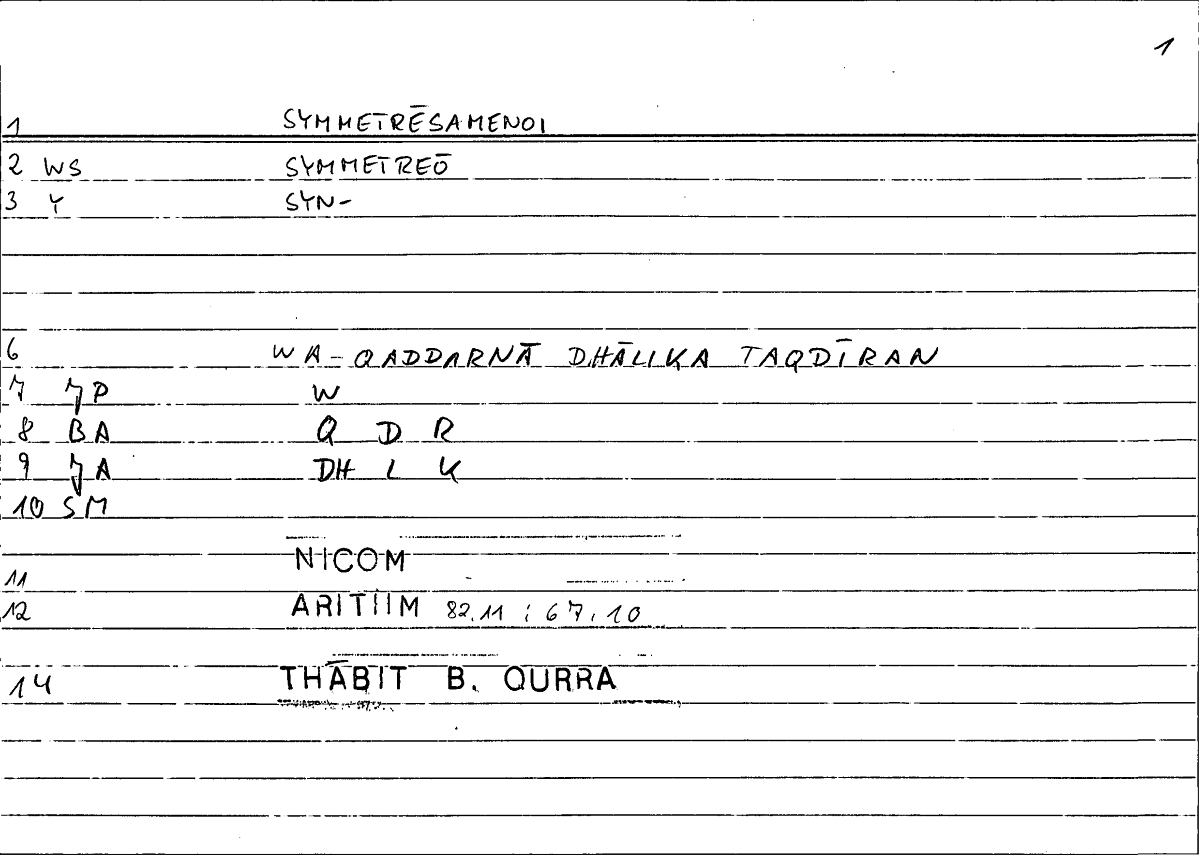 1
1 SYMMETRĒSAMENOI
2 WS SYMMETREŌ
3 Y SYN-
6 WA-QADDARNĀ DHĀLIKA TAQDĪRAN
7 JP W
8 BA Q D R
9 JA DH L K
10 SM
11 NICOM
12 ARITHM 82.11 ; 67.10
14 THĀBIT B. QURRA